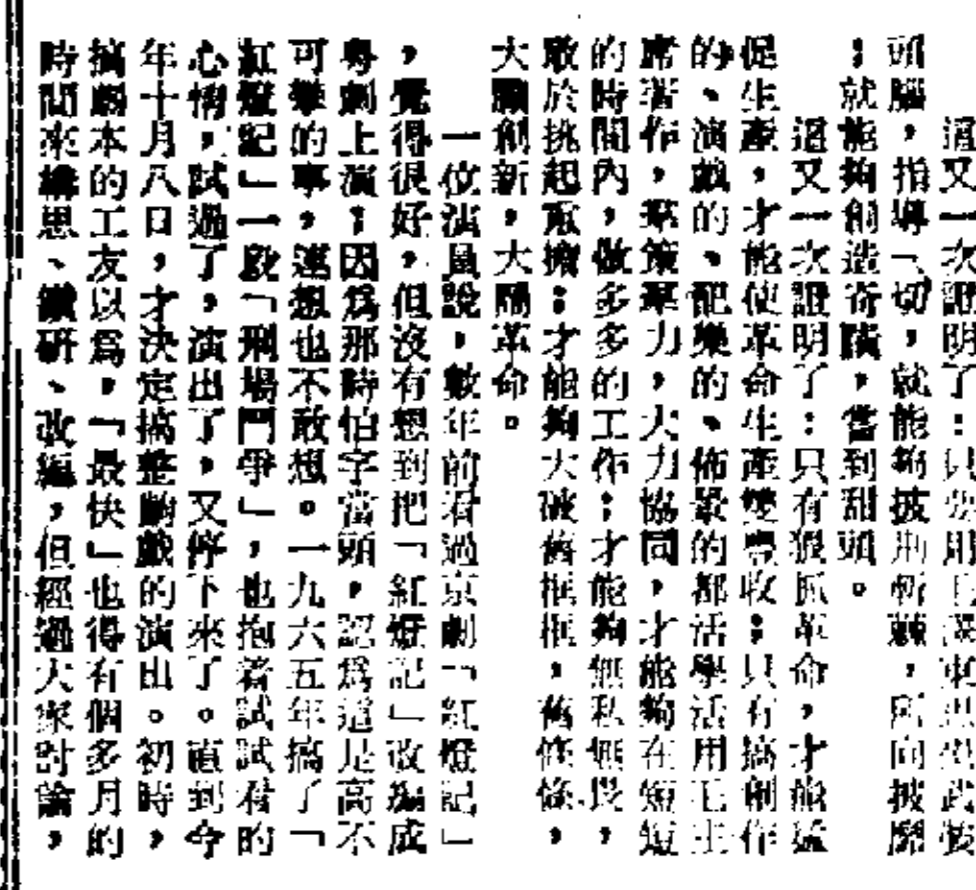 這又一次證明了：只要用毛澤東思想武裝
頭腦，指導一切，就能夠披荊斬棘，所向披靡
；就能夠創造奇蹟，嘗到甜頭。
這又一次證明了：只有狠抓革命，才能猛
促生產，才能使革命生產雙豐收；只有搞創作
的、演戲的、配樂的、佈景的都活學活用毛主
席著作，羣策羣力，大力協同，才能夠在短短
的時間內，做多多的工作；才能夠無私無畏，
敢於挑起重擔；才能夠大破舊框框，舊條條，
大膽創新，大鬧革命。
一位演員說，數年前看過京劇「紅燈記」
，覺得很好，但沒有想到把「紅燈記」改編成
粵劇上演；因爲那時怕字當頭，認爲這是高不
可攀的事，連想也不敢想。一九六五年搞了「
紅燈記」一段「刑場鬥爭」，也抱着試試看的
心情，試過了，演出了，又停下來了。直到今
年十月八日，才決定搞整齣戲的演出。初時，
搞劇本的工友以爲，「最快」也得有個多月的
時間來構思、鑽研、改編，但經過大家討論，